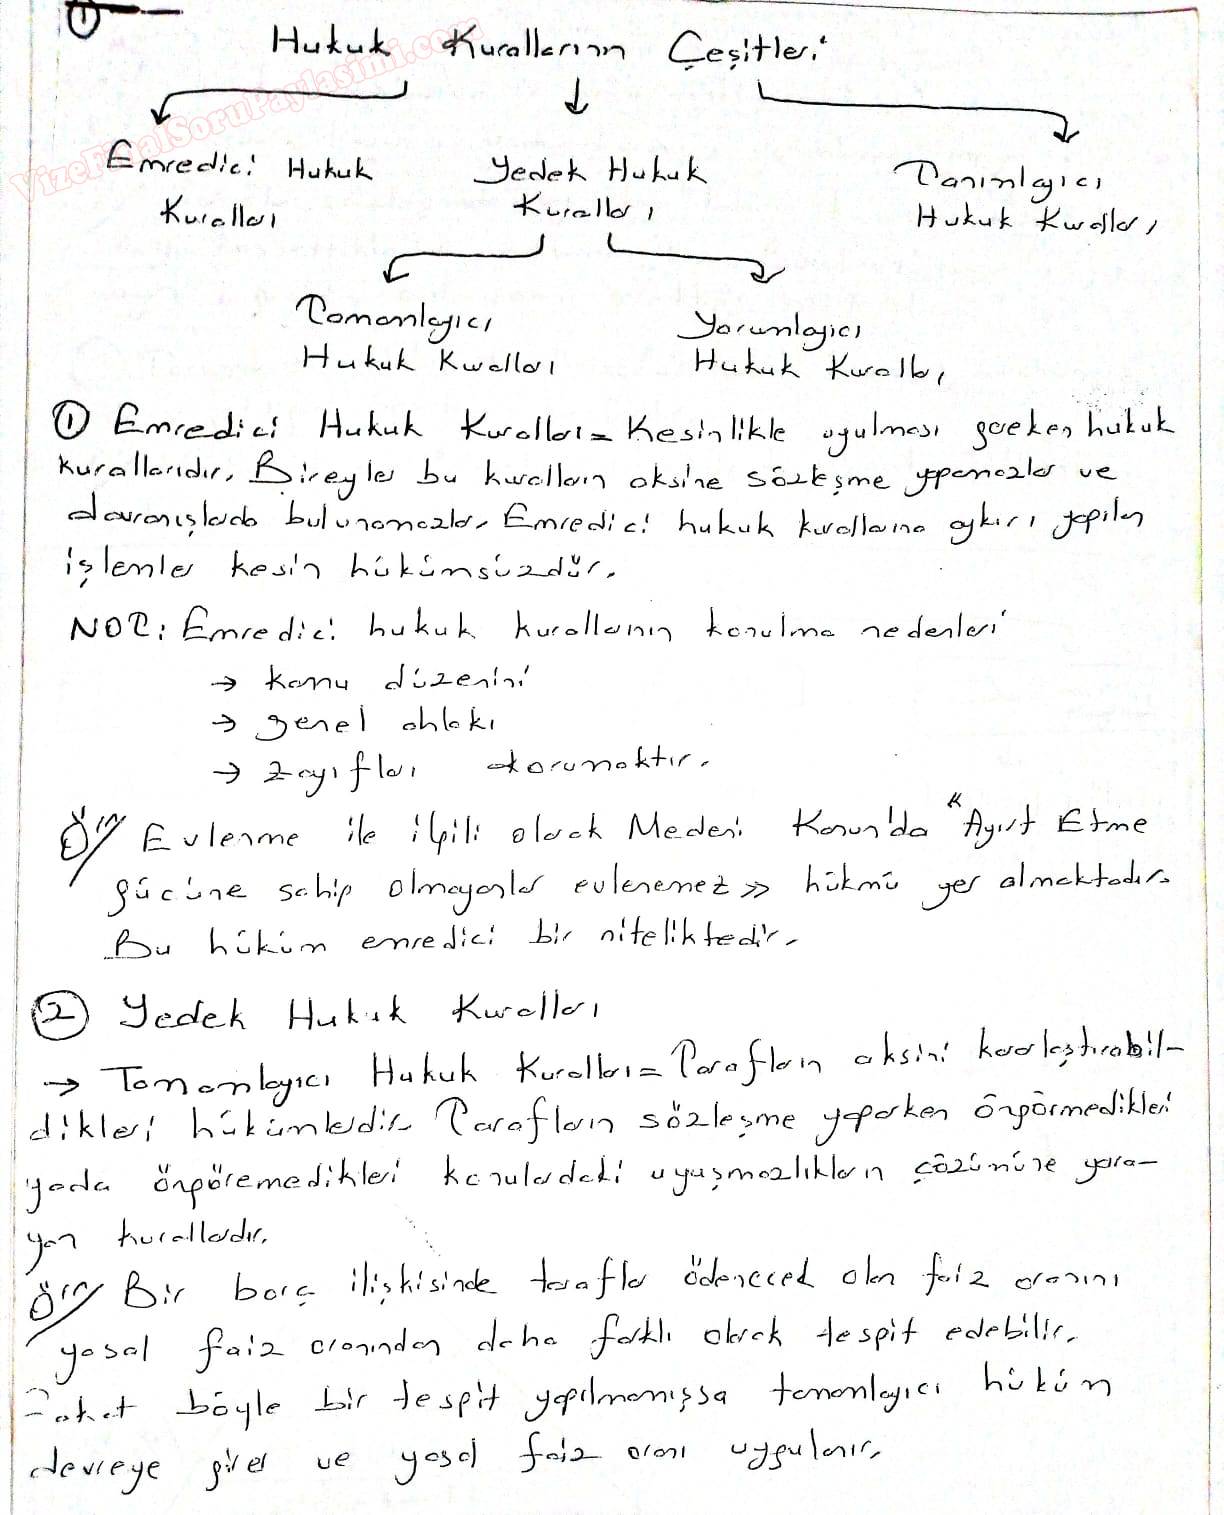 1
VizeFinalSoruPaylasimi.com
Hukuk Kurallarının Çeşitleri
Emredici Hukuk Kuralları
Yedek Hukuk Kuralları
Tanımlayıcı Hukuk Kuralları
Tamamlayıcı Hukuk Kuralları
Yorumlayıcı Hukuk Kuralları
1 Emredici Hukuk Kuralları = Kesinlikle uyulması gereken hukuk
kurallarıdır. Bireyler bu kuralların aksine sözleşme yapamazlar ve
davranışlarda bulunamazlar. Emredici hukuk kurallarına aykırı yapılan
işlemler kesin hükümsüzdür.
NOT: Emredici hukuk kurallarının konulma nedenleri
→ kamu düzenini
→ genel ahlakı
→ zayıfları korumaktır.
Örn/ Evlenme ile ilgili olarak Medeni Kanun'da "Ayırt Etme
gücüne sahip olmayanlar evlenemez» hükmü yer almaktadır.
Bu hüküm emredici bir niteliktedir.
2 Yedek Hukuk Kuralları
→ Tamamlayıcı Hukuk Kuralları = Tarafların aksini kararlaştırabil-
dikleri hükümlerdir. Tarafların sözleşme yaparken öngörmedikleri
yada öngöremedikleri konulardaki uyuşmazlıkların çözümüne yara-
yan kurallardır.
Örn/ Bir borç ilişkisinde taraflar ödenecek olan faiz oranını
yasal faiz oranından daha farklı olarak tespit edebilir.
Fakat böyle bir tespit yapılmamışsa tamamlayıcı hüküm
devreye girer ve yasal faiz oranı uygulanır.